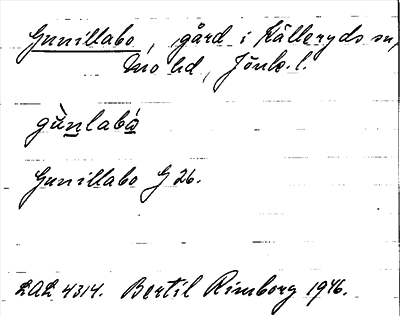 Gunillabo, gård i Källeryds sn,
Mo hd, Jönk. l.
gùnlabá
Gunillabo G 26.
LAL 4314. Bertil Rimborg 1946.